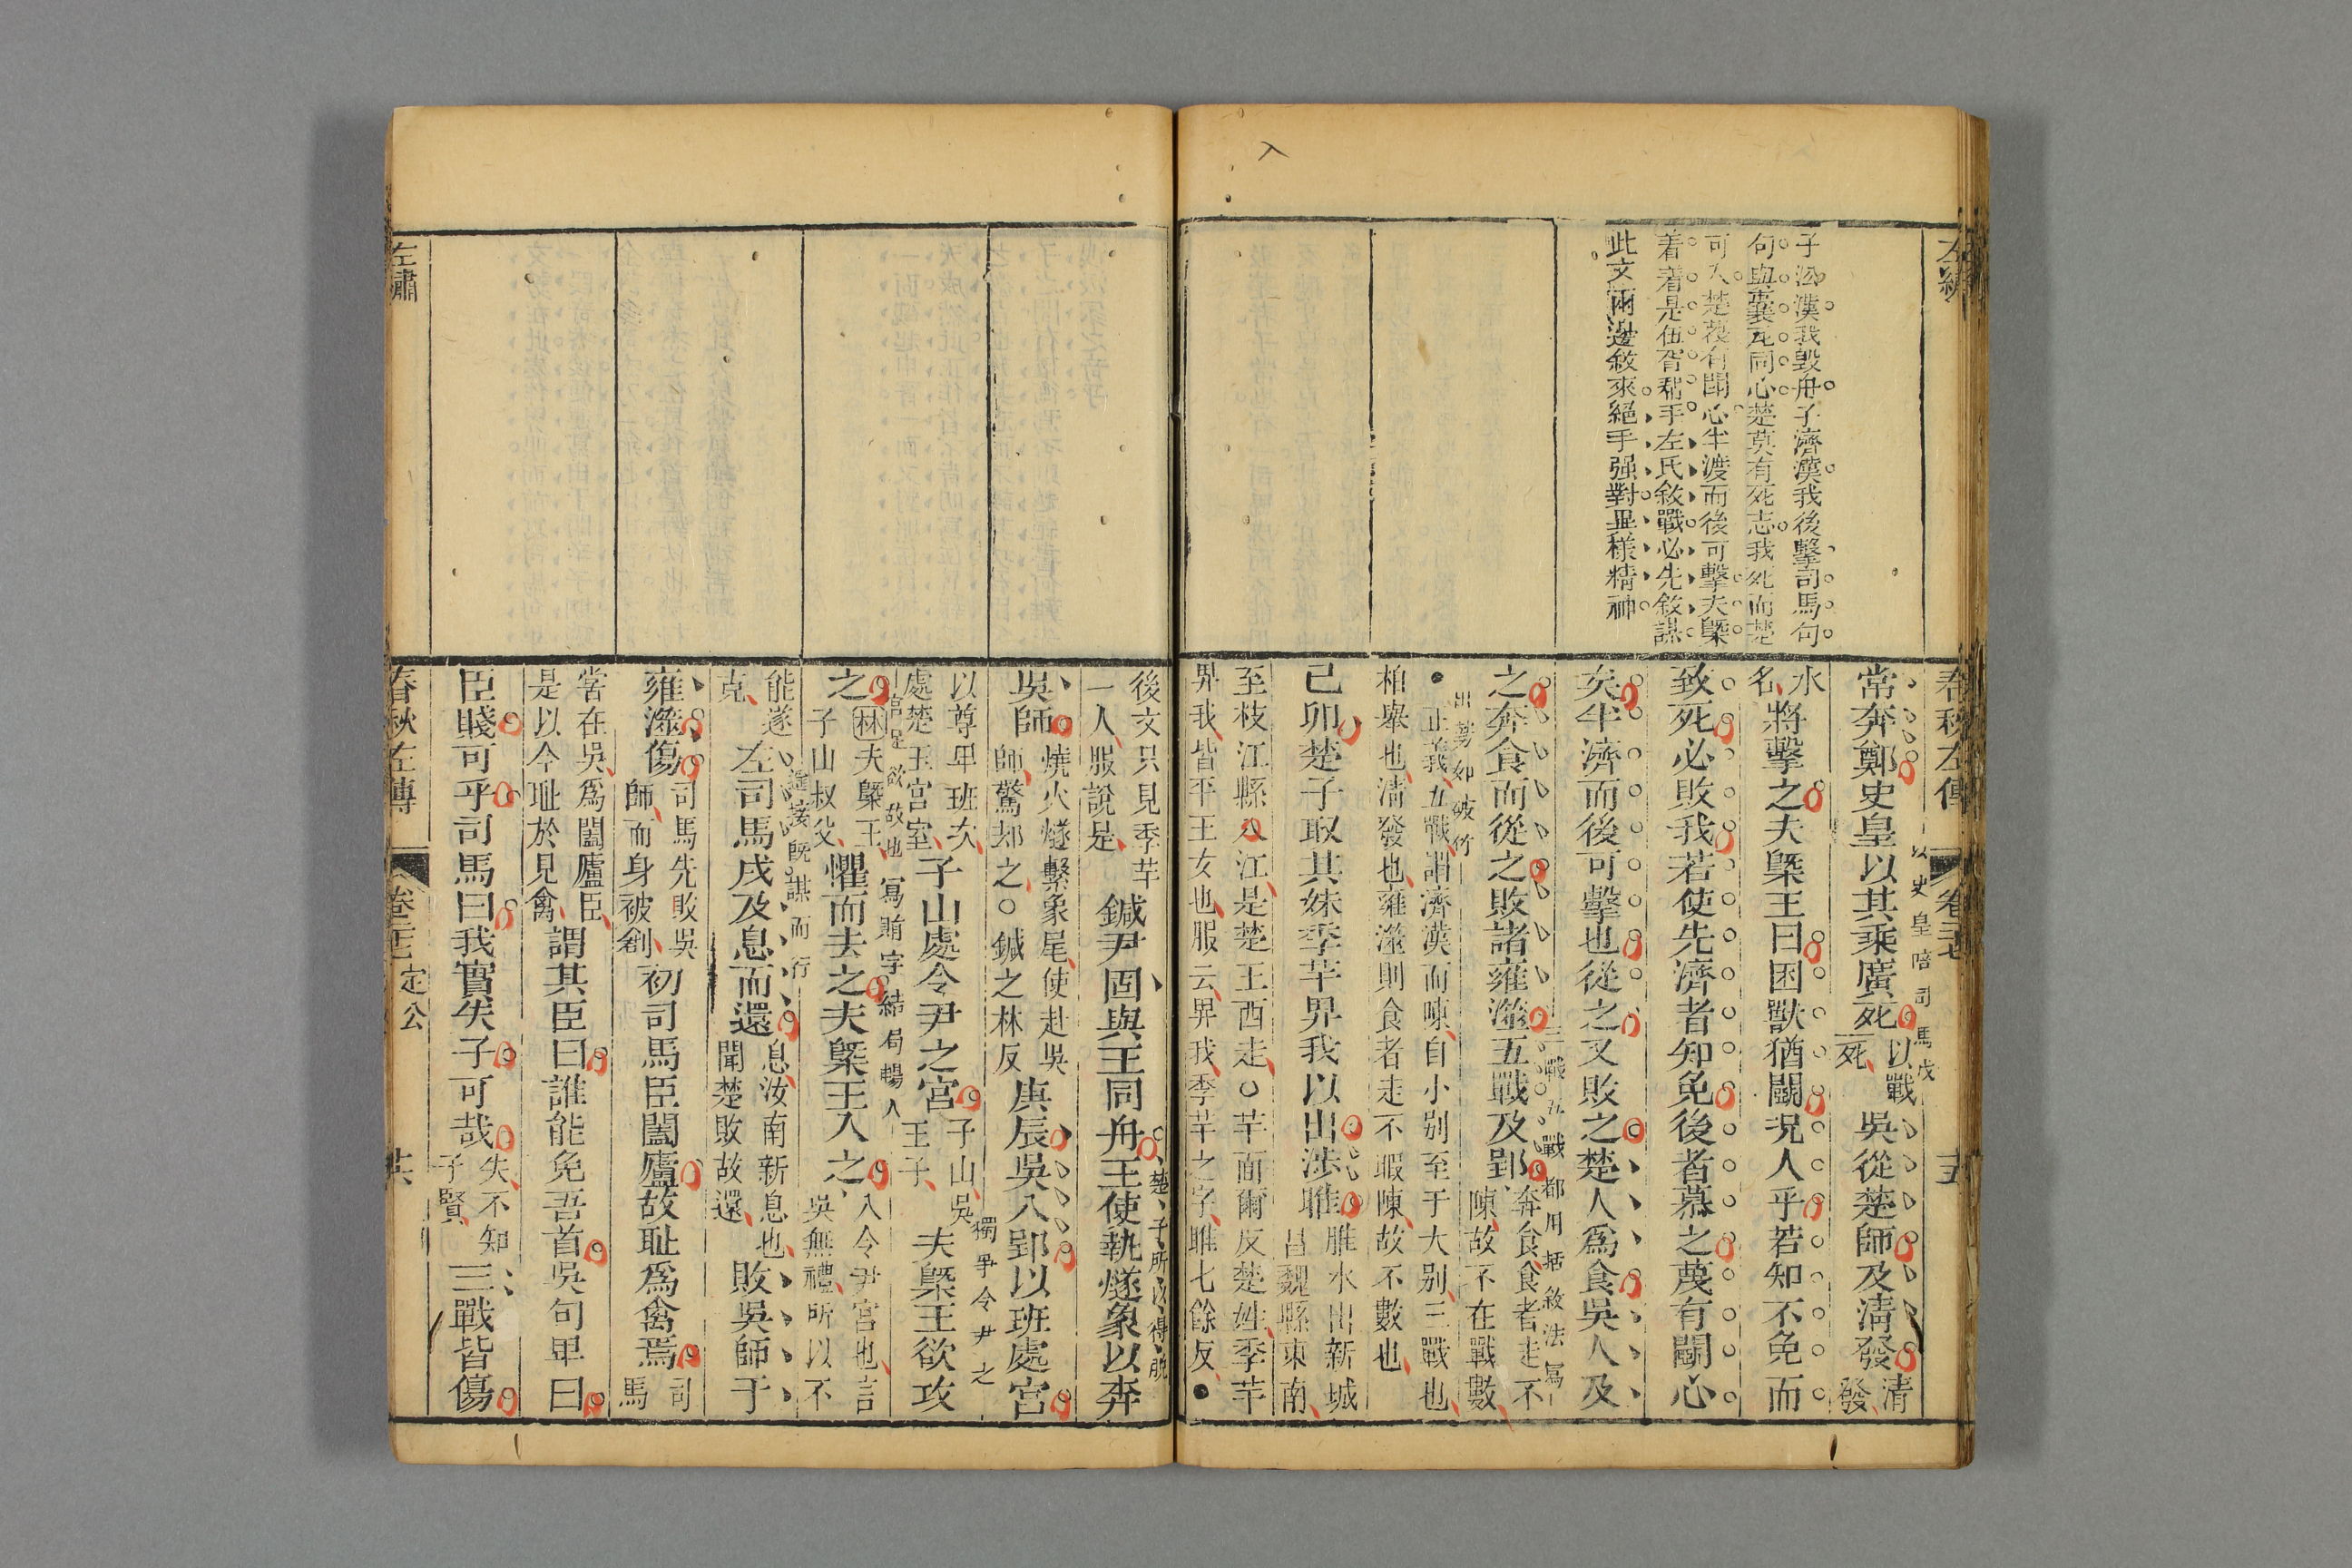 左繡
子沿漢我毀舟子濟漢我後擊司馬句
句與囊瓦同心楚莫有死志我死而楚
可入楚我有鬭心半渡而後可擊夫槩
着着是伍胥耦手左氏敘戰必先敘謀
此文兩邊敘來絕手强對異樣精神
春秋左傳 卷二七 十五
以史皇陪司馬戌
常奔鄭史皇以其乘廣死
以戰
死
吳從楚師及淸發
淸
發
水
名
將擊之夫槩王曰困獸猶鬭況人乎若知不免而
致死必敗我若使先濟者知免後者慕之蔑有鬭心
矣半濟而後可擊也從之又敗之楚人爲食吳人及
三戰五戰都用括敘法寫
出勢如破竹
之奔食而從之敗諸雍澨五戰及郢
奔食食者走不
陳故不在戰數
正義五戰謂濟漢而陳自小別至于大別三戰也
柏舉也淸發也雍澨則食者走不暇陳故不數也
己卯楚子取其妹季羋畀我以出涉雎
雎水出新城
昌魏縣東南
至枝江縣入江是楚王西走○羋面爾反楚姓季羋
畀我皆平王女也服云畀我季羋之字雎七餘反
後文只見季羋
一人服說是
鍼尹固與王同舟王使執燧象以奔
楚子所以得脫
吳師
燒火燧繫象尾使赴吳
師驚却之○鍼之林反
庚辰吳入郢以班處宮
以尊卑班次
處楚王宮室
子山處令尹之宮
子山吳
王子
夫槩王欲攻
獨爭令尹之
宮是欲故也
之
林夫槩王
子山叔父
懼而去之夫槩王入之
入令尹宮也言
吳無禮所以不
寫賄字結局暢人
能遂
克
左司馬戌及息而還
遥接旣謀而行
息汝南新息也
聞楚敗故還
敗吳師于
雍澨傷
司馬先敗吳
師而身被創
初司馬臣闔廬故恥爲禽焉
司
馬
嘗在吳爲闔廬臣
是以今恥於見禽
謂其臣曰誰能免吾首吳句卑曰
臣賤可乎司馬曰我實失子可哉
失不知
子賢
三戰皆傷
左繡
春秋左傳 定公